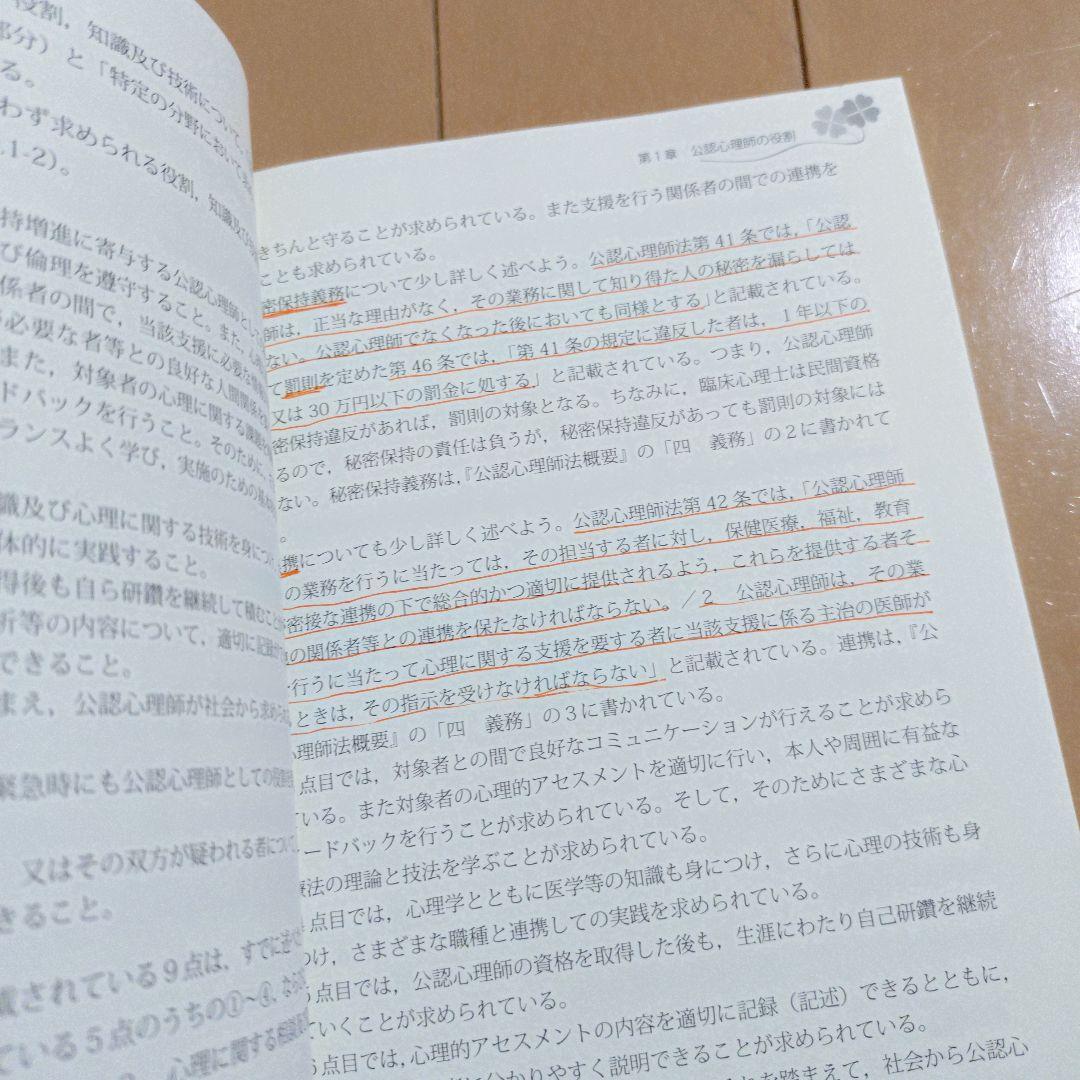 役割，知識及び技術について，
部分）と「特定の分野において求
る。
わず求められる役割，知識及び
.1-2）。
持増進に寄与する公認心理師とし
び倫理を遵守すること。また，
係者の間で，当該支援に必要な
必要な者等との良好な人間関係を
また，対象者の心理に関する課題
ドバックを行うこと。そのために，
ランスよく学び，実施のための基本
識及び心理に関する技術を身につ
体的に実践すること。
得後も自ら研鑽を継続して積むこと
析等の内容について，適切に記録
できること。
まえ，公認心理師が社会から求められ
緊急時にも公認心理師としての役割
又はその双方が疑われる者について
きること。
載されている９点は，すでに述べ
ている５点のうちの①～④，
心理に関する相談
第１章　公認心理師の役割
きちんと守ることが求められている。また支援を行う関係者の間での連携を
ことも求められている。
密保持義務について少し詳しく述べよう。公認心理師法第 41 条では，「公認
師は，正当な理由がなく，その業務に関して知り得た人の秘密を漏らしては
ない。公認心理師でなくなった後においても同様とする」と記載されている。
て罰則を定めた第 46 条では，「第 41 条の規定に違反した者は，１年以下の
又は 30 万円以下の罰金に処する」と記載されている。つまり，公認心理師
密保持違反があれば，罰則の対象となる。ちなみに，臨床心理士は民間資格
るので，秘密保持の責任は負うが，秘密保持違反があっても罰則の対象には
ない。秘密保持義務は，『公認心理師法概要』の「四　義務」の２に書かれて
。
携についても少し詳しく述べよう。公認心理師法第 42 条では，「公認心理師
の業務を行うに当たっては，その担当する者に対し，保健医療，福祉，教育
密接な連携の下で総合的かつ適切に提供されるよう，これらを提供する者そ
の関係者等との連携を保たなければならない。／２　公認心理師は，その業
行うに当たって心理に関する支援を要する者に当該支援に係る主治の医師が
ときは，その指示を受けなければならない」と記載されている。連携は，『公
心理師法概要』の「四　義務」の３に書かれている。
点目では，対象者との間で良好なコミュニケーションが行えることが求めら
いる。また対象者の心理的アセスメントを適切に行い，本人や周囲に有益な
ードバックを行うことが求められている。そして，そのためにさまざまな心
療法の理論と技法を学ぶことが求められている。
点目では，心理学とともに医学等の知識も身につけ，さらに心理の技術も身
つけ，さまざまな職種と連携しての実践を求められている。
５点目では，公認心理師の資格を取得した後も，生涯にわたり自己研鑽を継続
ていくことが求められている。
６点目では，心理的アセスメントの内容を適切に記録（記述）できるとともに，
に分かりやすく説明できることが求められている。
を踏まえて，社会から公認心